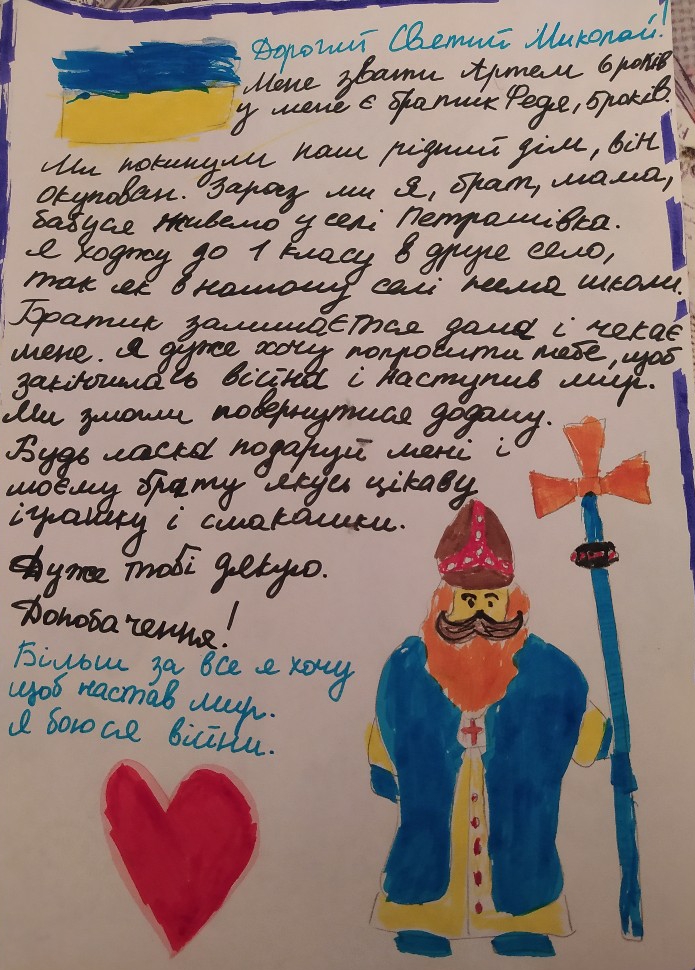 Дорогий Светий Миколай!
Мене звати Артем 6 років
у мене є братик Федя, 5 років.
Ми покинули наш рідний дім, він
окупован. Зараз ми я, брат, мама,
бабуся живемо у селі Петрашівка.
Я ходжу до 1 класу в друге село,
так як в нашому селі нема школи.
Братик залишається дома і чекає
мене. Я дуже хочу попросити тебе, щоб
закінчилась війна і наступив мир.
Ми змогли повернутися додому.
Будь ласка подаруй мені і
моєму брату якусь цікаву
іграшку і смаколики.
Дуже тобі дякую.
Допобачення!
Більш за все я хочу
щоб настав мир.
Я боюся війни.